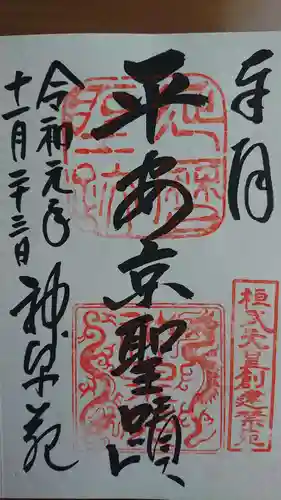 奉拝
桓武天皇創建禁苑
平安京聖蹟
令和元年
十一月二十三日
神泉苑